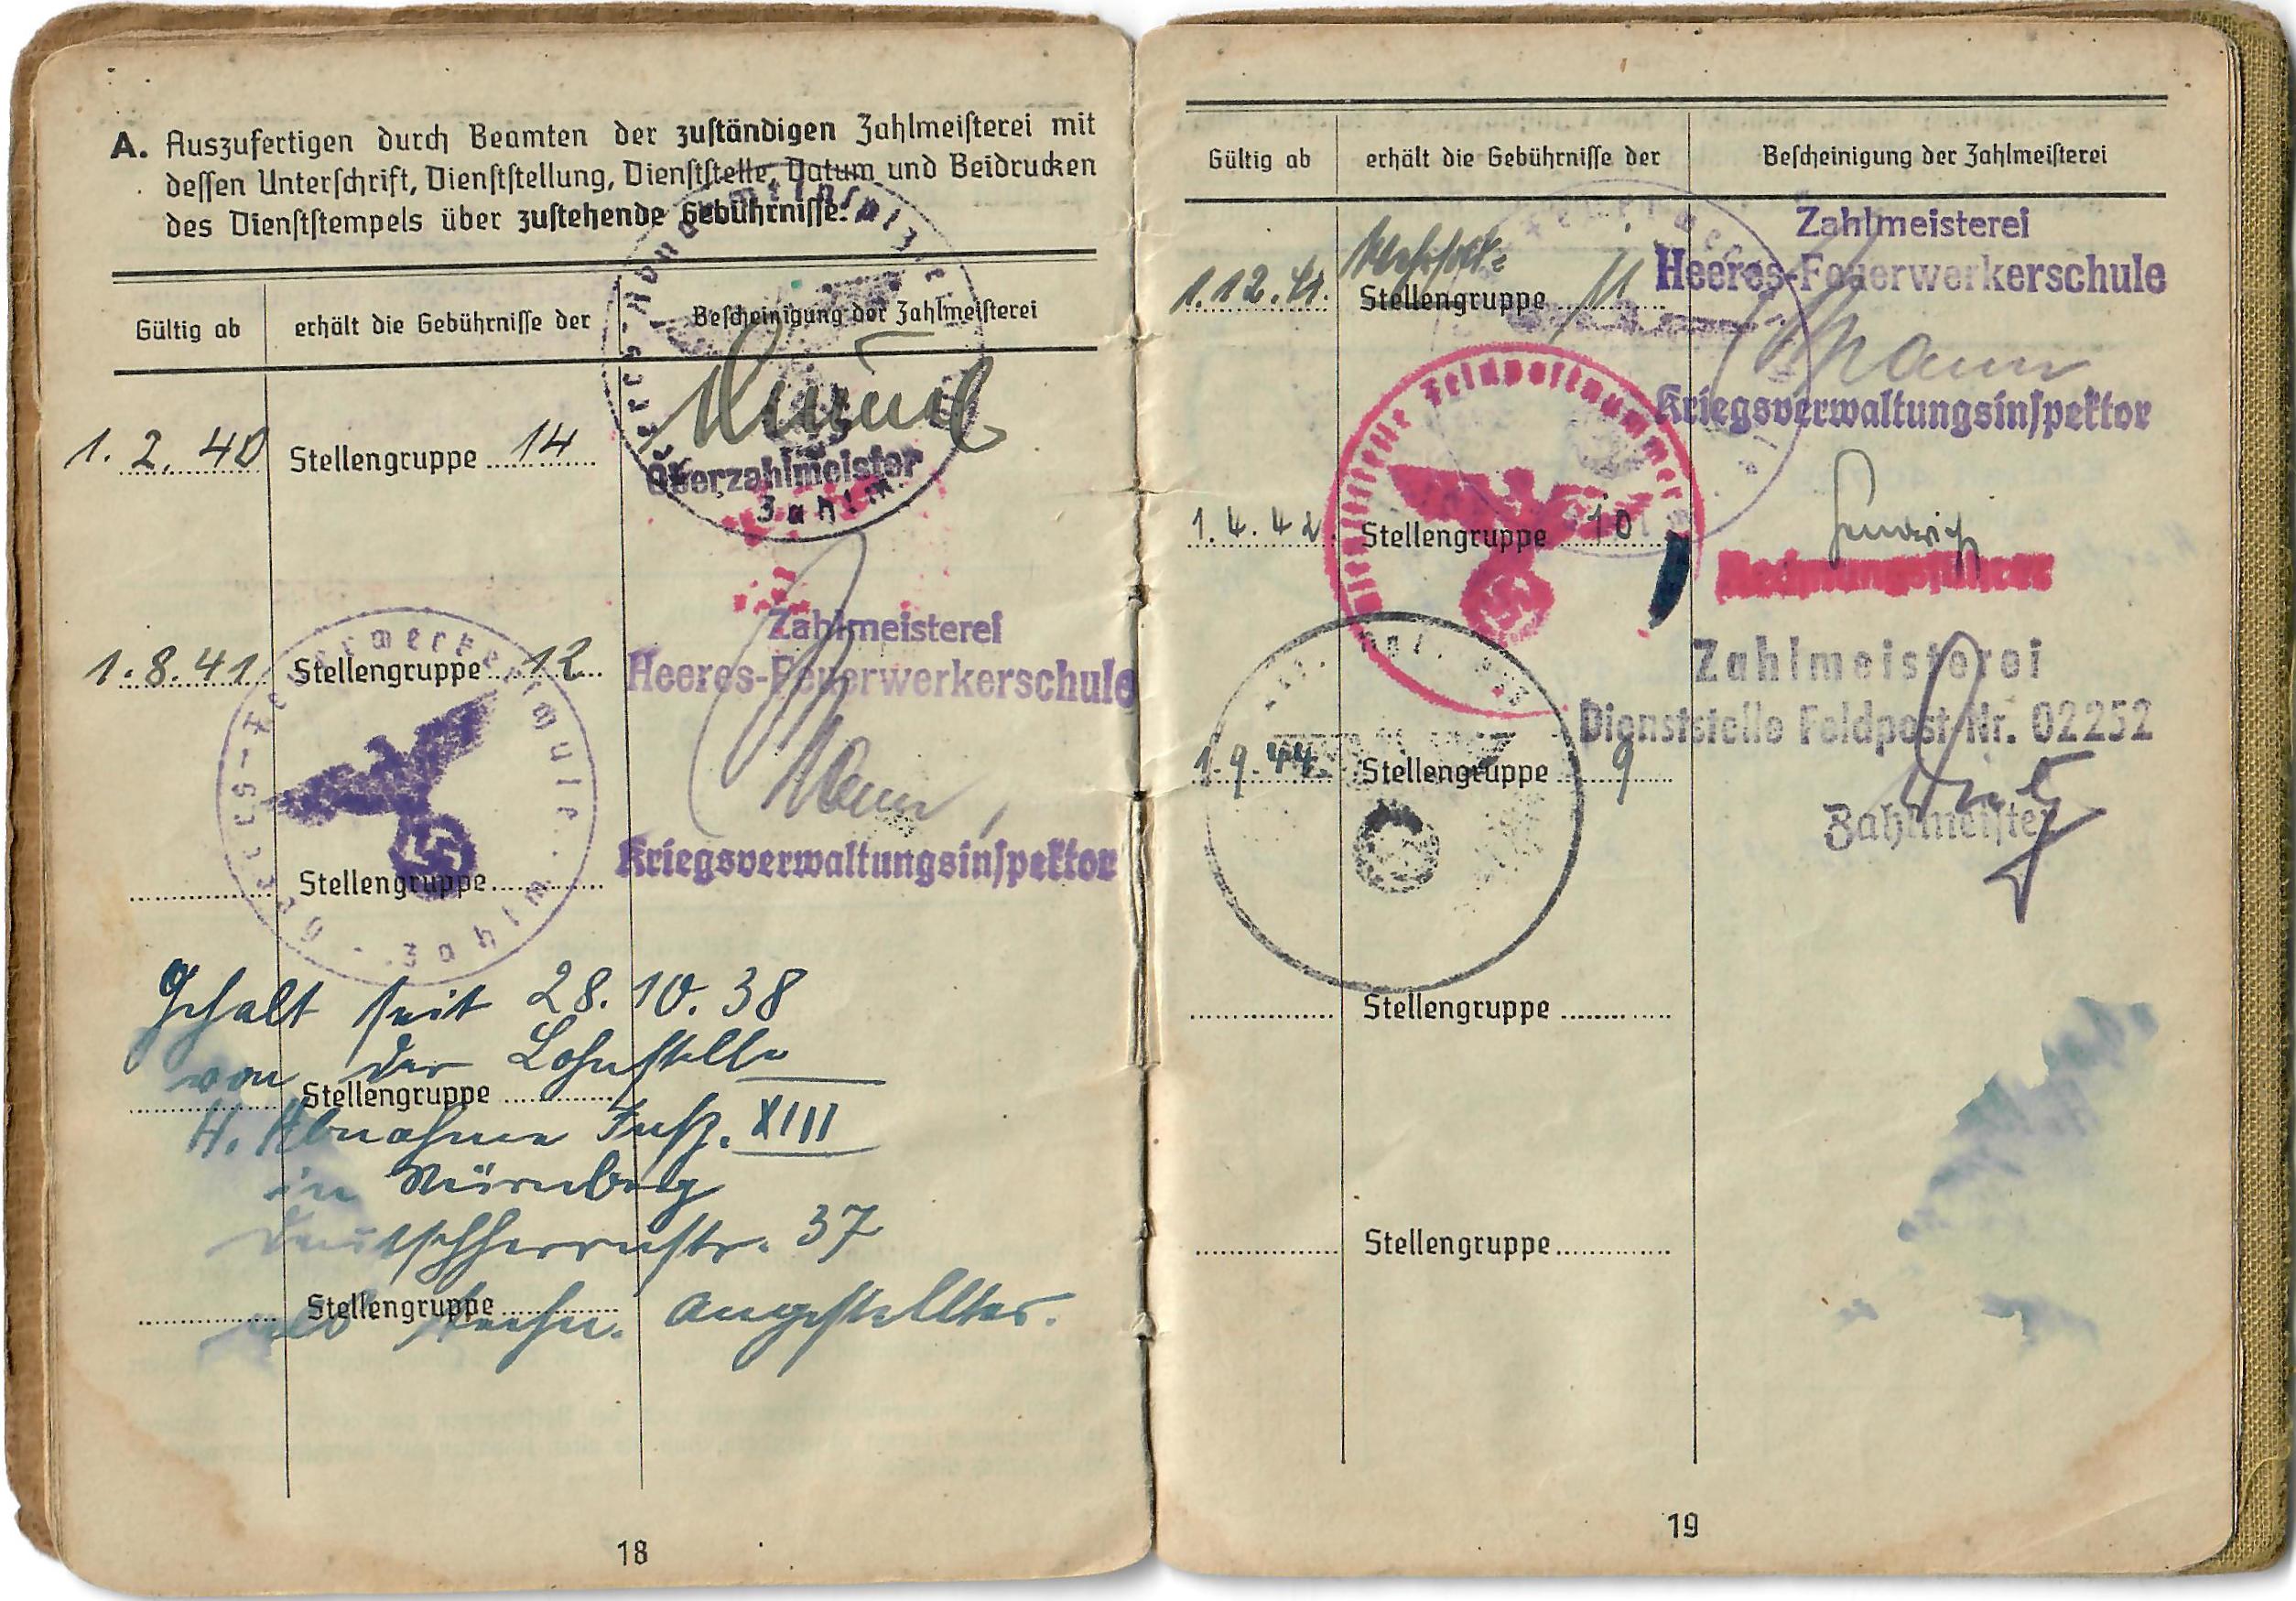 A. Auszufertigen durch Beamten der zuständigen Zahlmeisterei mit
dessen Unterschrift, Dienststellung, Dienststelle, Datum und Beidrucken
des Dienststempels über zustehende Gebührnisse.
Gültig ab erhält die Gebührnisse der Bescheinigung der Zahlmeisterei
1.2.40 Stellengruppe 14
Oberzahlmeister
Zahlm.
1.8.41 Stellengruppe 12
Zahlmeisterei
Heeres-Feuerwerkerschule
Kriegsverwaltungsinspektor
Stellengruppe
Gehalt seit 28.10.38
von der Lohnstelle
Stellengruppe
H. Abnahme Insp. XIII
in Nürnberg
Deutschherrnstr. 37
Stellengruppe
als techn. Angestellter.
18
Gültig ab erhält die Gebührnisse der Bescheinigung der Zahlmeisterei
1.12.41. Stellengruppe 11
Zahlmeisterei
Heeres-Feuerwerkerschule
Kriegsverwaltungsinspektor
Dienststelle Feldpostnummer
1.4.42 Stellengruppe 10
Rechnungsführer
Zahlmeisterei
Dienststelle Feldpost-Nr. 02252
1.9.44. Stellengruppe 9
Zahlmeister
Stellengruppe
Stellengruppe
19